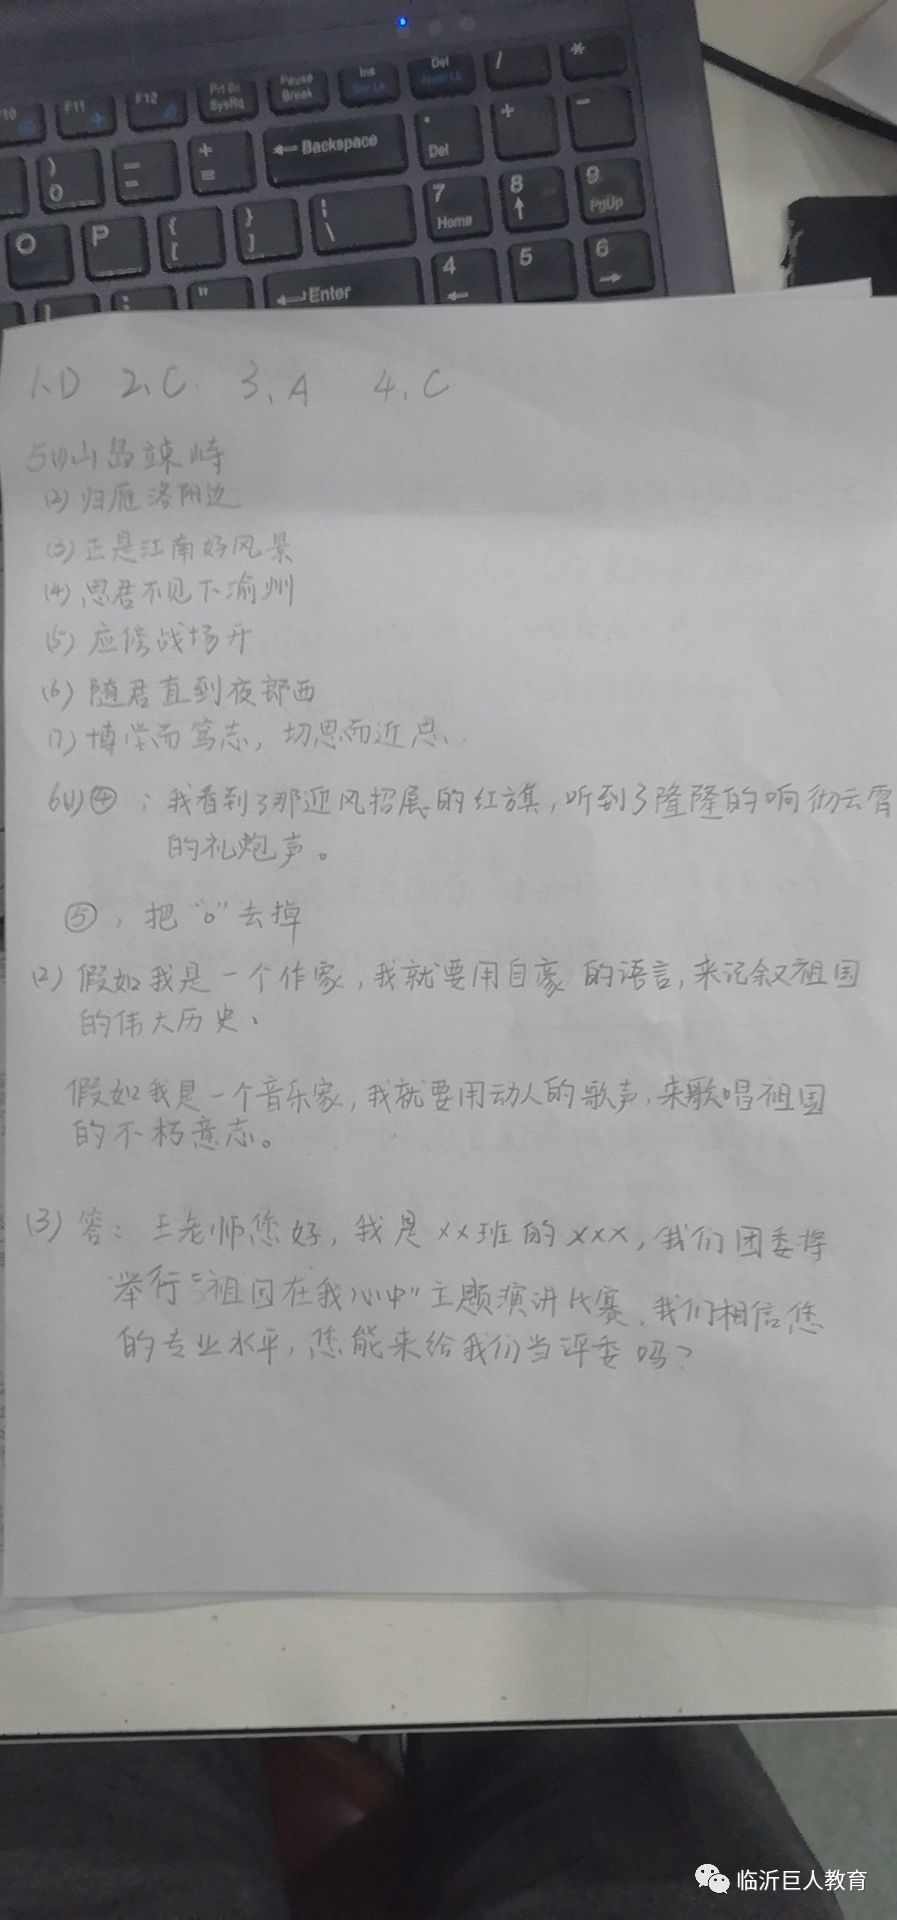 F10 F11 F12 Prt Sc SysRq Pause Break Ins Del / *
) 0 — - + = ← Backspace . Del + -
O P { [ } ] | \ 7 Home 8 ↑ 9 PgUp
" ← Enter 4 ← 5 6 →
1、D 2、C. 3、A 4、C
5(1)山岛竦峙
(2)归雁洛阳边
(3)正是江南好风景
(4)思君不见下渝州
(5)应傍战场开
(6)随君直到夜郎西
(7)博学而笃志，切思而近思、
6(1)④：我看到了那迎风招展的红旗，听到了隆隆的响彻云霄
的礼炮声。
⑤，把“o”去掉
(2)假如我是一个作家，我就要用自豪的语言，来记叙祖国
的伟大历史、
假如我是一个音乐家，我就要用动人的歌声，来歌唱祖国
的不朽意志。
(3)答：王老师您好，我是××班的×××，我们团委将
举行“祖国在我心中”主题演讲比赛，我们相信您
的专业水平，您能来给我们当评委吗？
临沂巨人教育